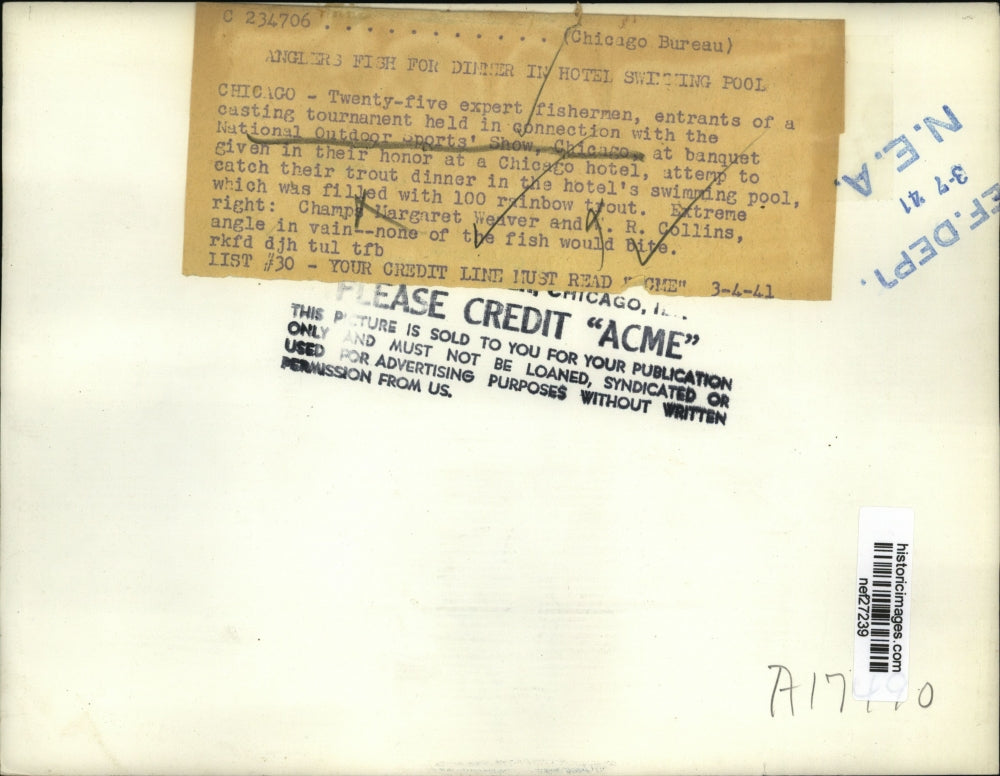 C 234706 . . . . . . . . . . . . (Chicago Bureau)
ANGLERS FISH FOR DINNER IN HOTEL SWIMMING POOL
CHICAGO - Twenty-five expert fishermen, entrants of a
casting tournament held in connection with the
National Outdoor Sports' Show, Chicago, at banquet
given in their honor at a Chicago hotel, attemp to
catch their trout dinner in the hotel's swimming pool,
which was filled with 100 rainbow trout. Extreme
right: Champs Margaret Weaver and . R. Collins,
angle in vain--none of the fish would bite.
rkfd djh tul tfb
LIST #30 - YOUR CREDIT LINE MUST READ "ACME" 3-4-41
CHICAGO, ILL.
PLEASE CREDIT "ACME"
THIS PICTURE IS SOLD TO YOU FOR YOUR PUBLICATION
ONLY AND MUST NOT BE LOANED, SYNDICATED OR
USED FOR ADVERTISING PURPOSES WITHOUT WRITTEN
PERMISSION FROM US.
N.E.A.
3-7 '41
EF. DEPT.
historicimages.com
nef27239
A17 0